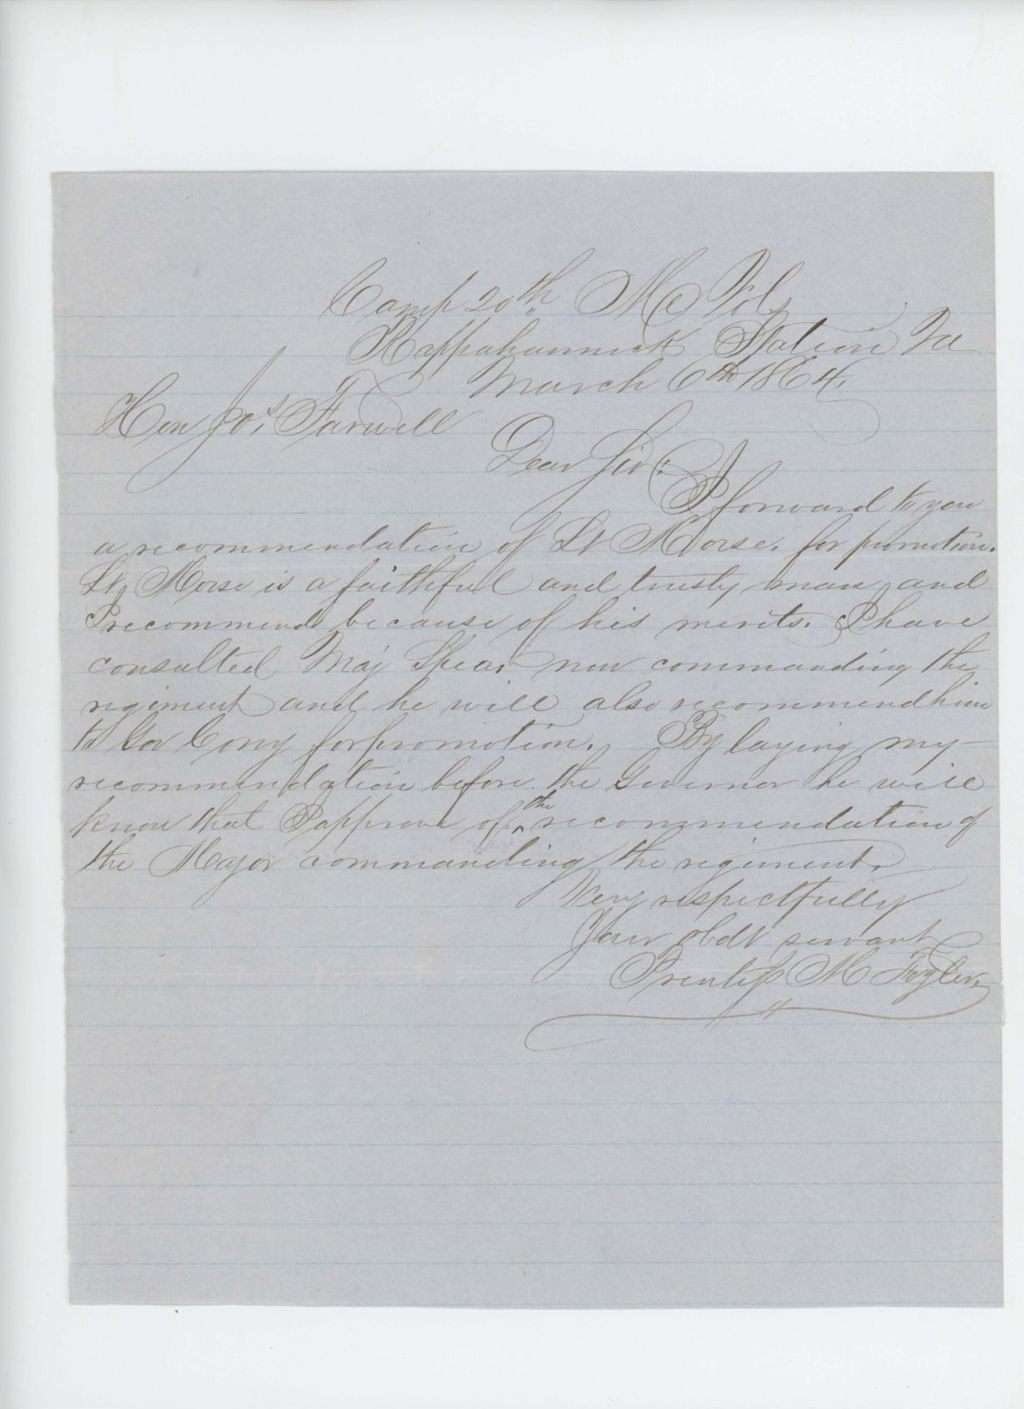 Camp 20th Me Vol,
Rappahannock Station Va
March 6th 1864.
Hon Jos, Farwell
Dear Sir:
I forward to you
a recommendation of Lt Morse. for promotion.
Lt, Morse is a faithful and trusty man and
I recommend because of his merits. I have
consulted Maj Spear now commanding the
regiment and he will also recommend him
to Gov Cony for promotion. By laying my
recommendation before the Governor he will
know that I approve of ^the recommendation of
the Major commanding the regiment.
Very respectfully
Your obdt servant
Prentiss M Fogler,